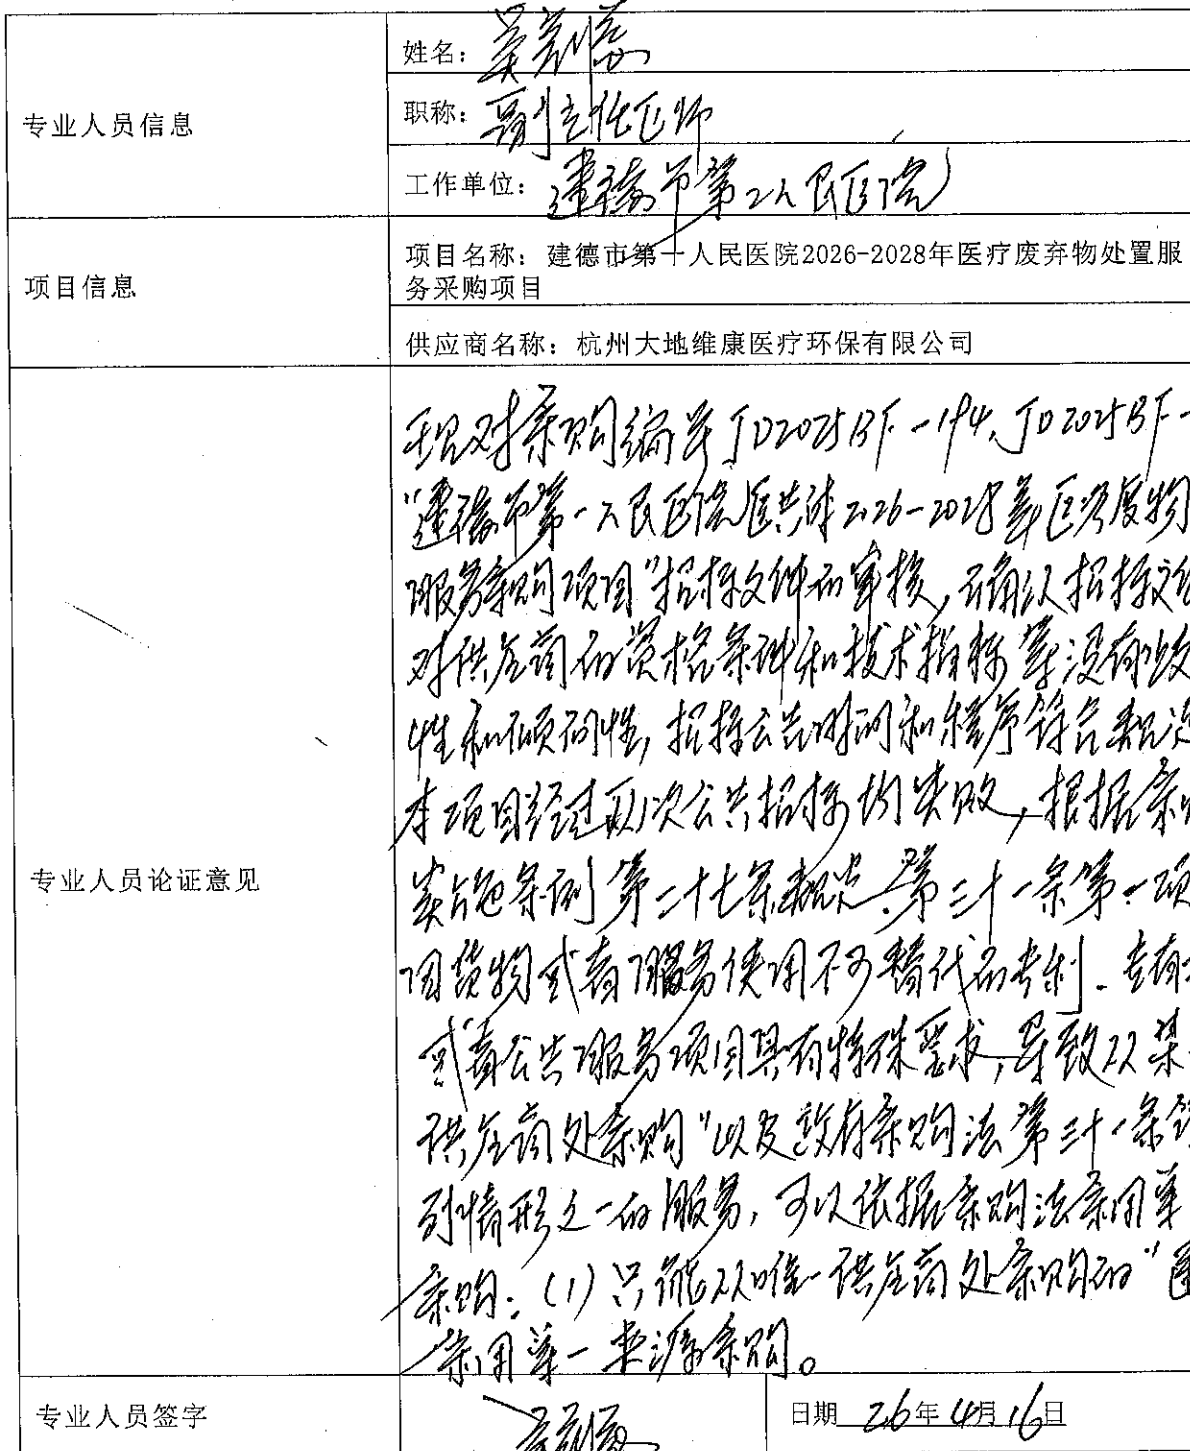 专业人员信息
姓名：
职称：副主任医师
工作单位：建德市第二人民医院
项目信息
项目名称：建德市第一人民医院2026-2028年医疗废弃物处置服
务采购项目
供应商名称：杭州大地维康医疗环保有限公司
专业人员论证意见
现对采购编号JD2025BF-194、JD2025BF-
"建德市第一人民医院医共体2026-2028年医疗废物
服务采购项目"招标文件的审核，确认招标文件
对供应商的资格条件和技术指标等没有歧
性和倾向性，招标公告时间和程序符合规定
本项目经过两次公共招标均失败，根据采购
实施条例第二十七条规定、第三十一条第一项
因货物或者服务使用不可替代的专利、专有
或者公共服务项目具有特殊要求，导致只能从某
供应商处采购"以及政府采购法第三十一条
列情形之一的服务，可以依据采购法采用单
采购：(1)只能从唯一供应商处采购的"
采用单一来源采购。
专业人员签字
日期 26年4月16日